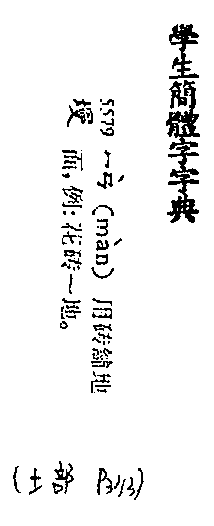 學生簡體字字典
5579 ㄇㄢˋ (màn) 用砖鋪地
墁 面，例：花砖～地。
(土部